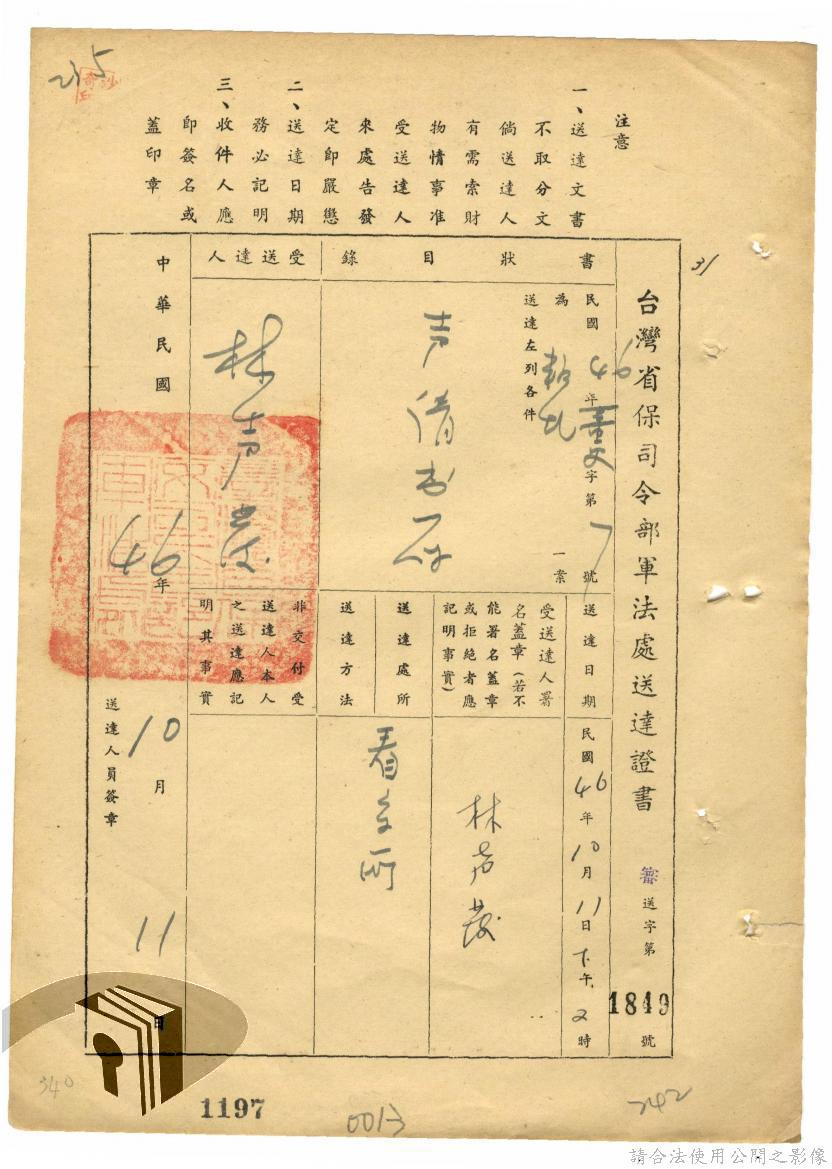 235
注意
一、送達文書
不取分文
倘送達人
有需索財
物情事准
受送達人
來處告發
定即嚴懲
二、送達日期
務必記明
三、收件人應
即簽名或
蓋印章
31
台灣省保司令部軍法處送達證書
送字第1849號
民國46年
字第7號
為
一案
送達左列各件
書狀目錄
声請書一件
受送達人
林声發
送達日期
民國46年10月11日下午2時
受送達人署
名蓋章(若不
能署名蓋章
或拒絕者應
記明事實)
林声發
送達處所
看守所
送達方法
非交付受
送達人本人
之送達應記
明其事實
中華民國46年10月11日
送達人員簽章
340
1197
0013
242
請合法使用公開之影像